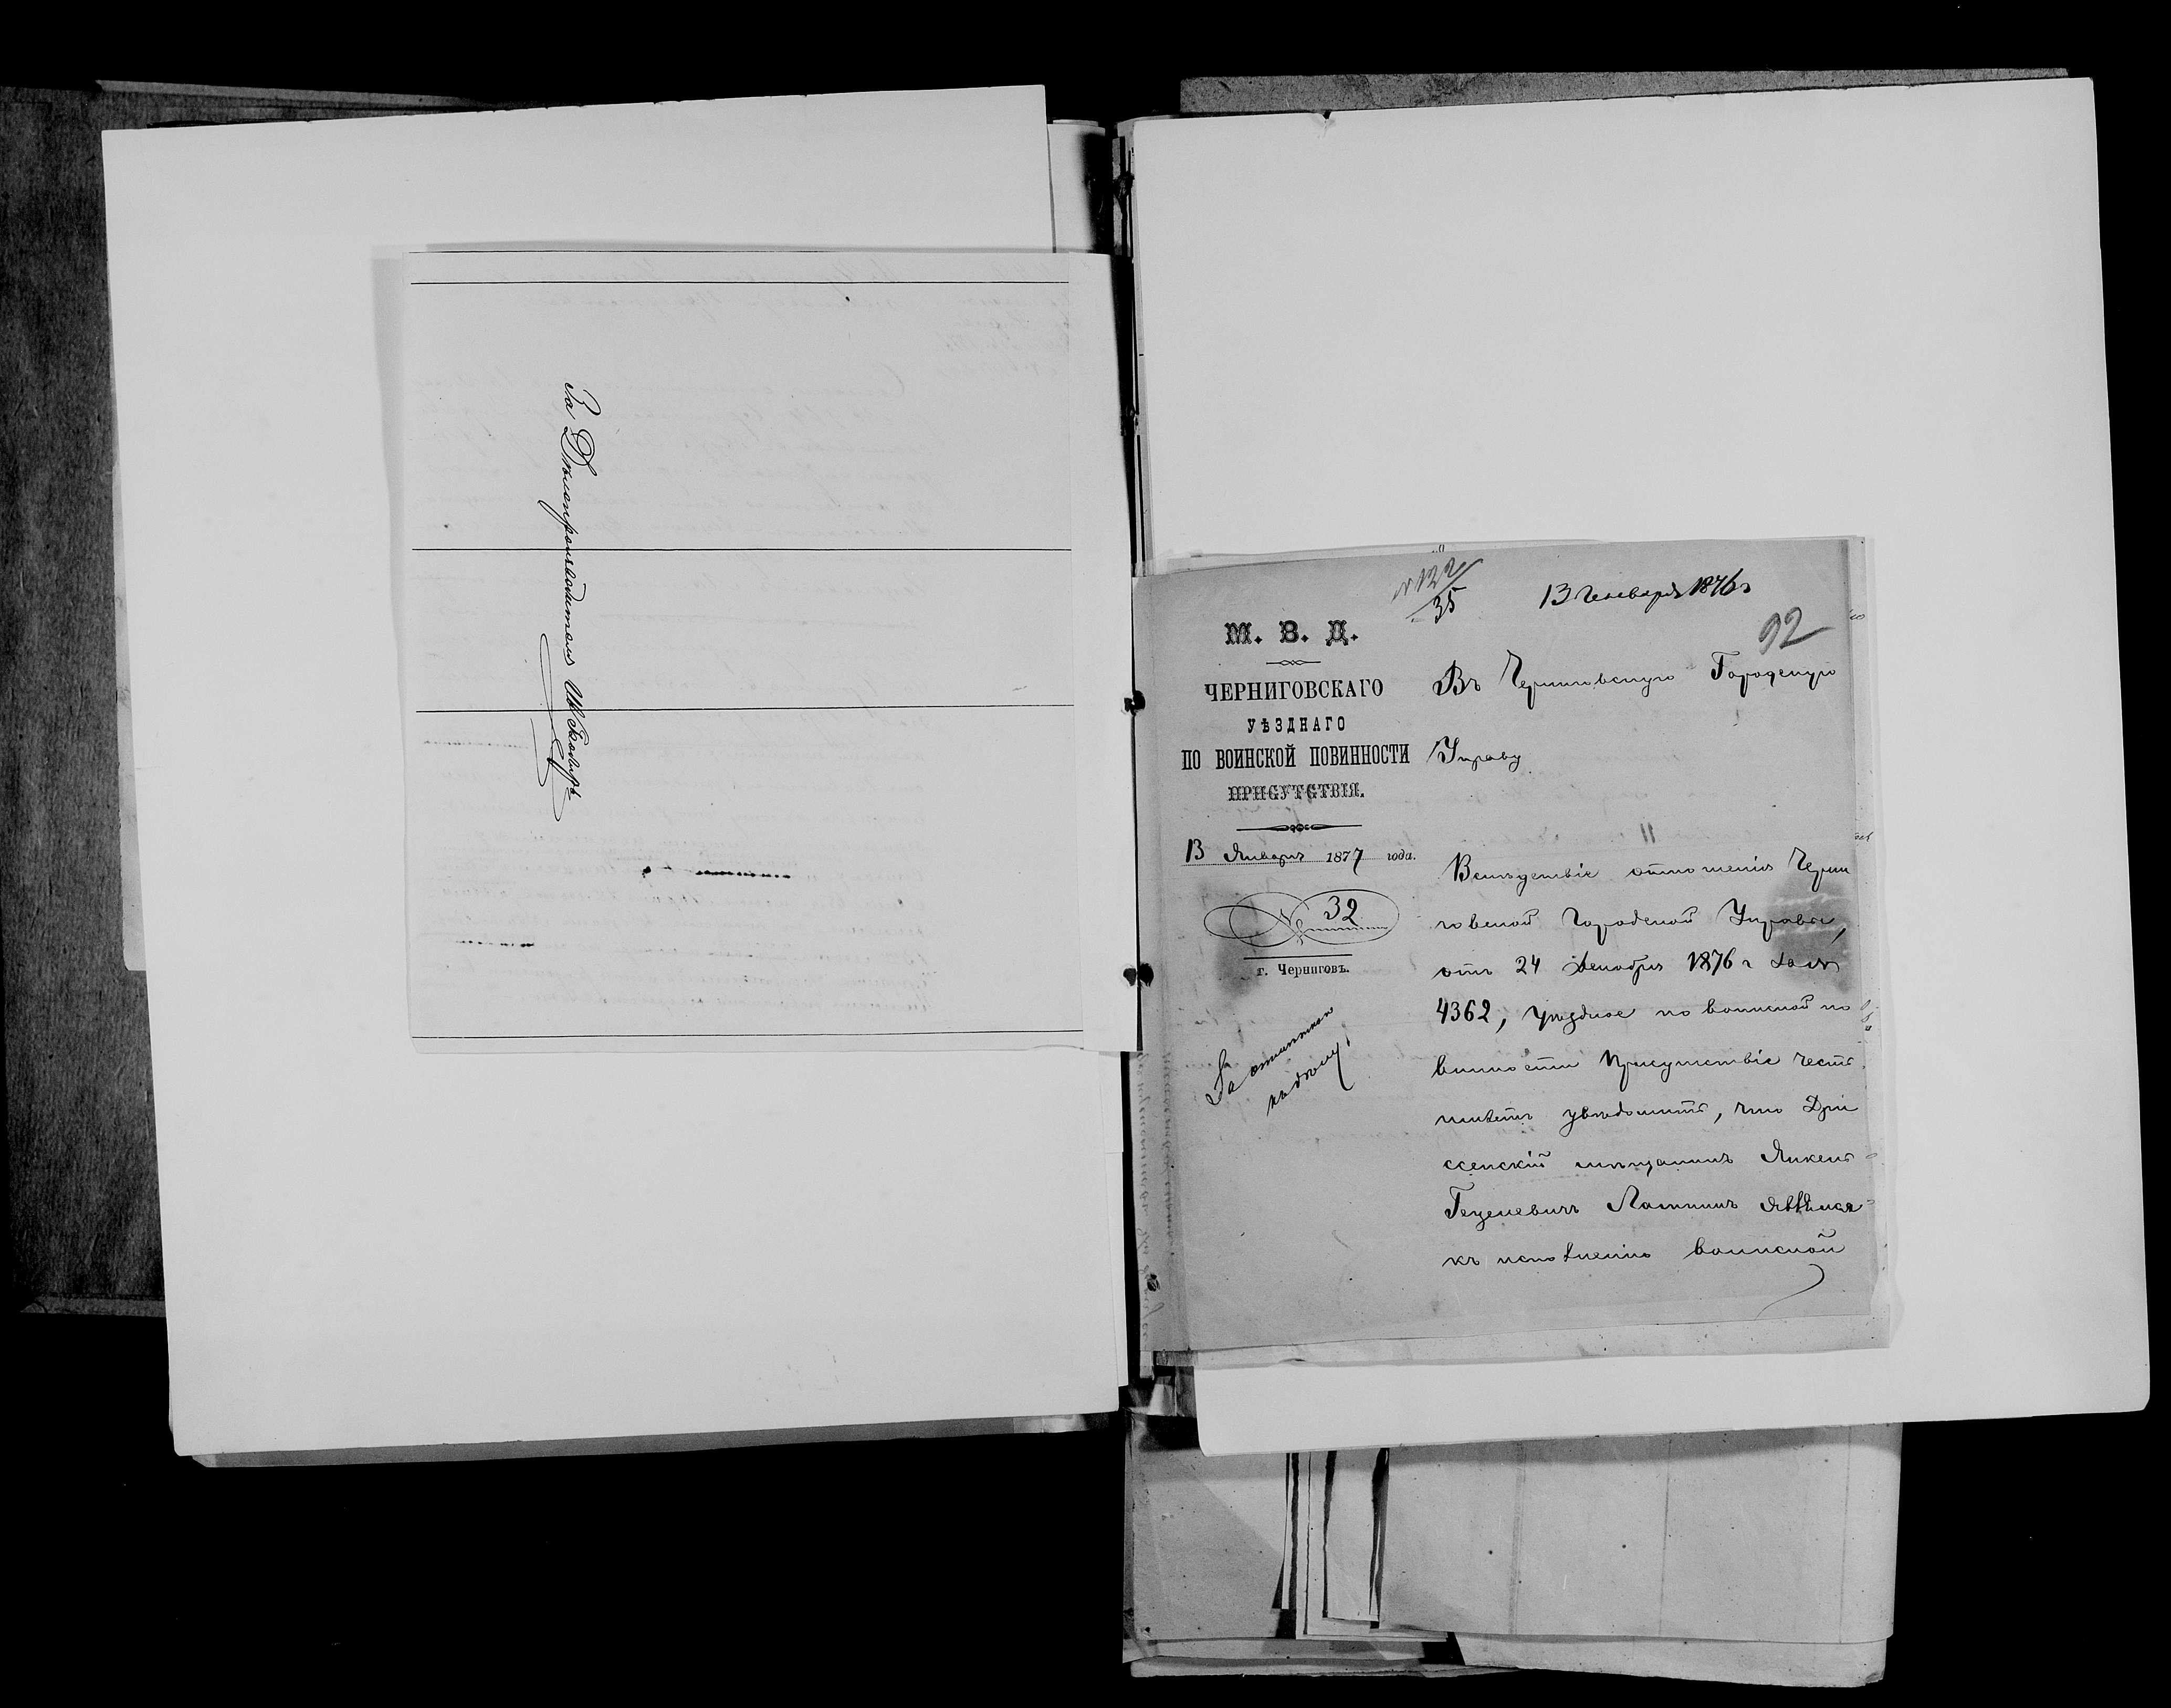 За Дѣлопроизводителя
№ 132/35
13 Генваря 1876 г
92
М. В. Д.
ЧЕРНИГОВСКАГО
УѢЗДНАГО
ПО ВОИНСКОЙ ПОВИННОСТИ
ПРИСУТСТВІЯ.
13 Января 1877 года.
№ 32
г. Черниговъ.
Въ Черниговскую Городскую
Управу
Вслѣдствіе отношенія Черни
говской Городской Управы,
отъ 24 Декабря 1876 г за №
4362, уѣздное по воинской по
винности Присутствіе честь
имѣетъ увѣдомить, что Дри
ссенскій мѣщанинъ Янкель
Гецелевичъ явился
къ исполненію воинской